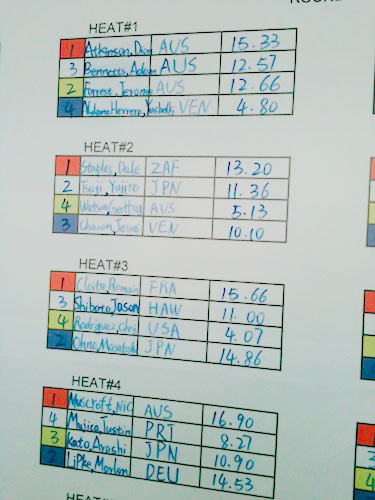 ROUND
HEAT#1
1 Atkinson, Dan AUS 15.33
3 Bennetts, Adam AUS 12.57
2 Forrest, Jerome AUS 12.66
4 Herrera, VEN 4.80
HEAT#2
1 Staples, Dale ZAF 13.20
2 Tsuji, Yujiro JPN 11.36
4 AUS 5.13
3 Chacon, Jesus VEN 10.10
HEAT#3
1 Cloitre, Romain FRA 15.66
3 Shibata, Jason HAW 11.00
4 Rodriguez, Chris USA 4.07
2 Ohno, Masatoshi JPN 14.86
HEAT#4
1 Muscroft, Nic AUS 16.90
4 Mujica, Justin PRT 8.27
3 Kato, Arashi JPN 10.90
2 Lipke, Marlon DEU 14.53